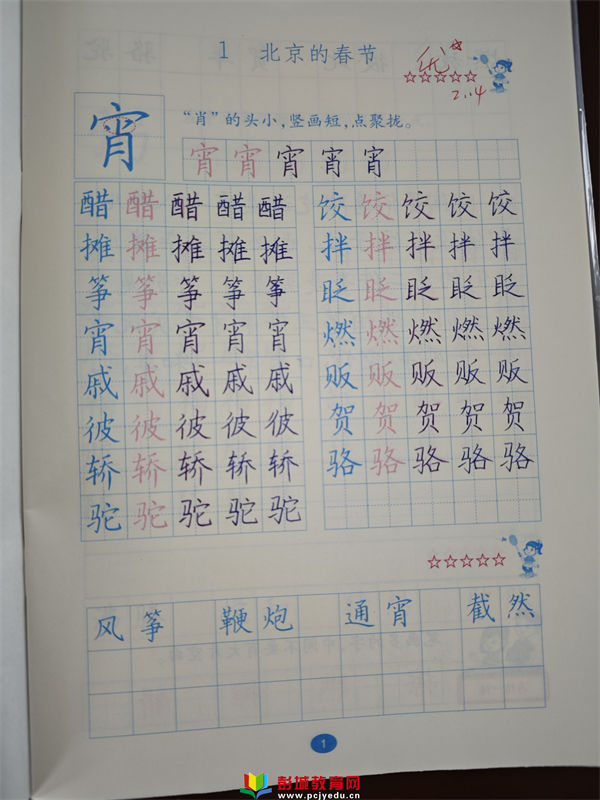 1 北京的春节
优
2.14
“肖”的头小，竖画短，点聚拢。
宵
宵 宵 宵 宵 宵
醋 醋 醋 醋 醋 饺 饺 饺 饺 饺
摊 摊 摊 摊 摊 拌 拌 拌 拌 拌
筝 筝 筝 筝 筝 眨 眨 眨 眨 眨
宵 宵 宵 宵 宵 燃 燃 燃 燃 燃
戚 戚 戚 戚 戚 贩 贩 贩 贩 贩
彼 彼 彼 彼 彼 贺 贺 贺 贺 贺
轿 轿 轿 轿 轿 骆 骆 骆 骆 骆
驼 驼 驼 驼 驼
风筝 鞭炮 通宵 截然
1
彭城教育网
www.pcjyedu.cn